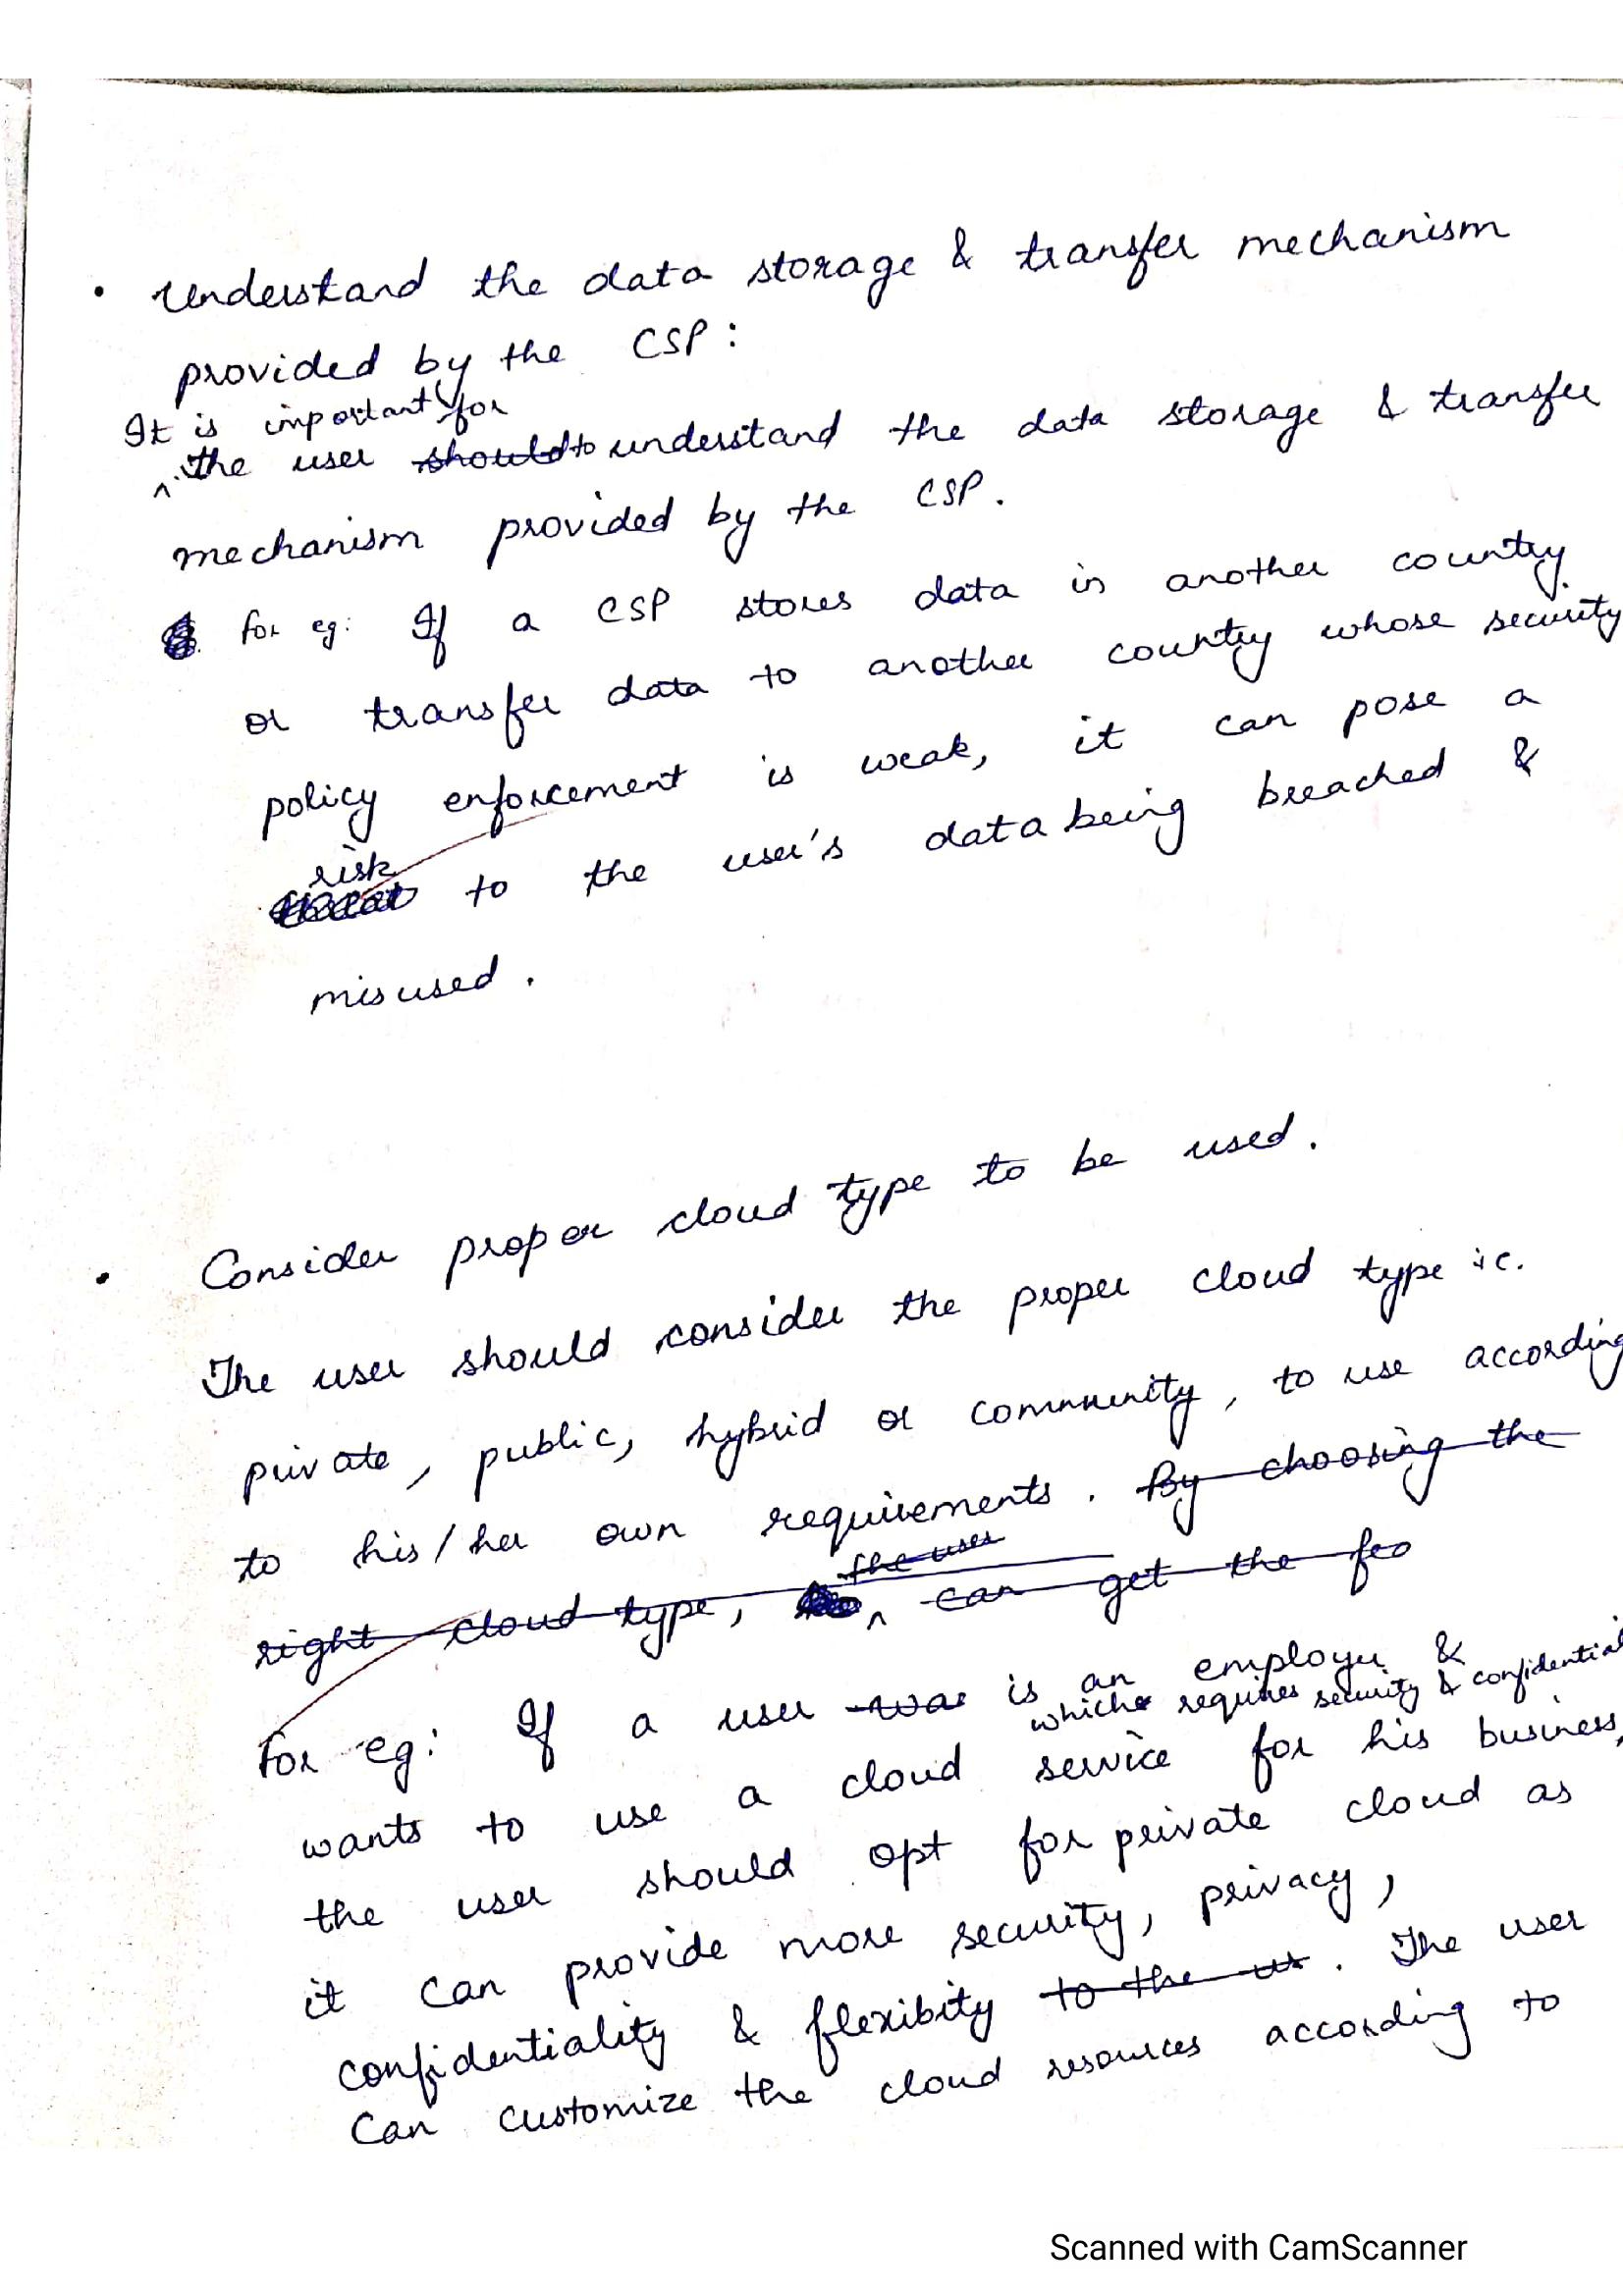 • Understand the data storage & transfer mechanism
provided by the CSP:
It is important for
^ the user should to understand the data storage & transfer
mechanism provided by the CSP.
for eg: If a CSP stores data in another country
or transfer data to another country whose security
policy enforcement is weak, it can pose a
risk
threat to the user's data being breached &
misused.
• Consider proper cloud type to be used.
The user should consider the proper cloud type ie.
private, public, hybrid or community, to use according
to his/her own requirements. By choosing the
the user
right cloud type, ^ can get the fea
for eg: If a user was is an employee &
which requires security & confidential
wants to use a cloud service for his business,
the user should opt for private cloud as
it can provide more security, privacy,
confidentiality & flexibity to the us. The user
can customize the cloud resources according to
Scanned with CamScanner